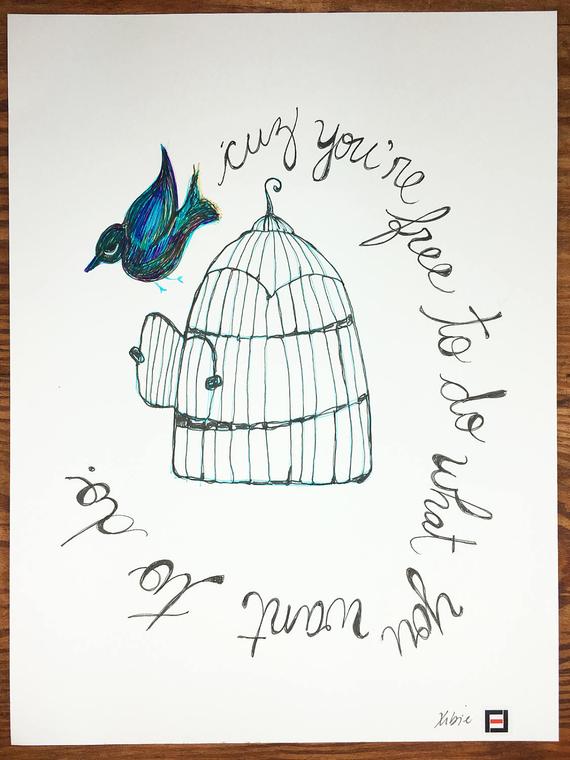 'cuz you're free to do what you want to do.
Xibie